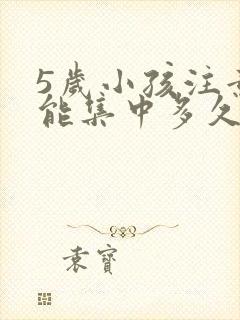 5歲小孩注意
能集中多久
袁寶